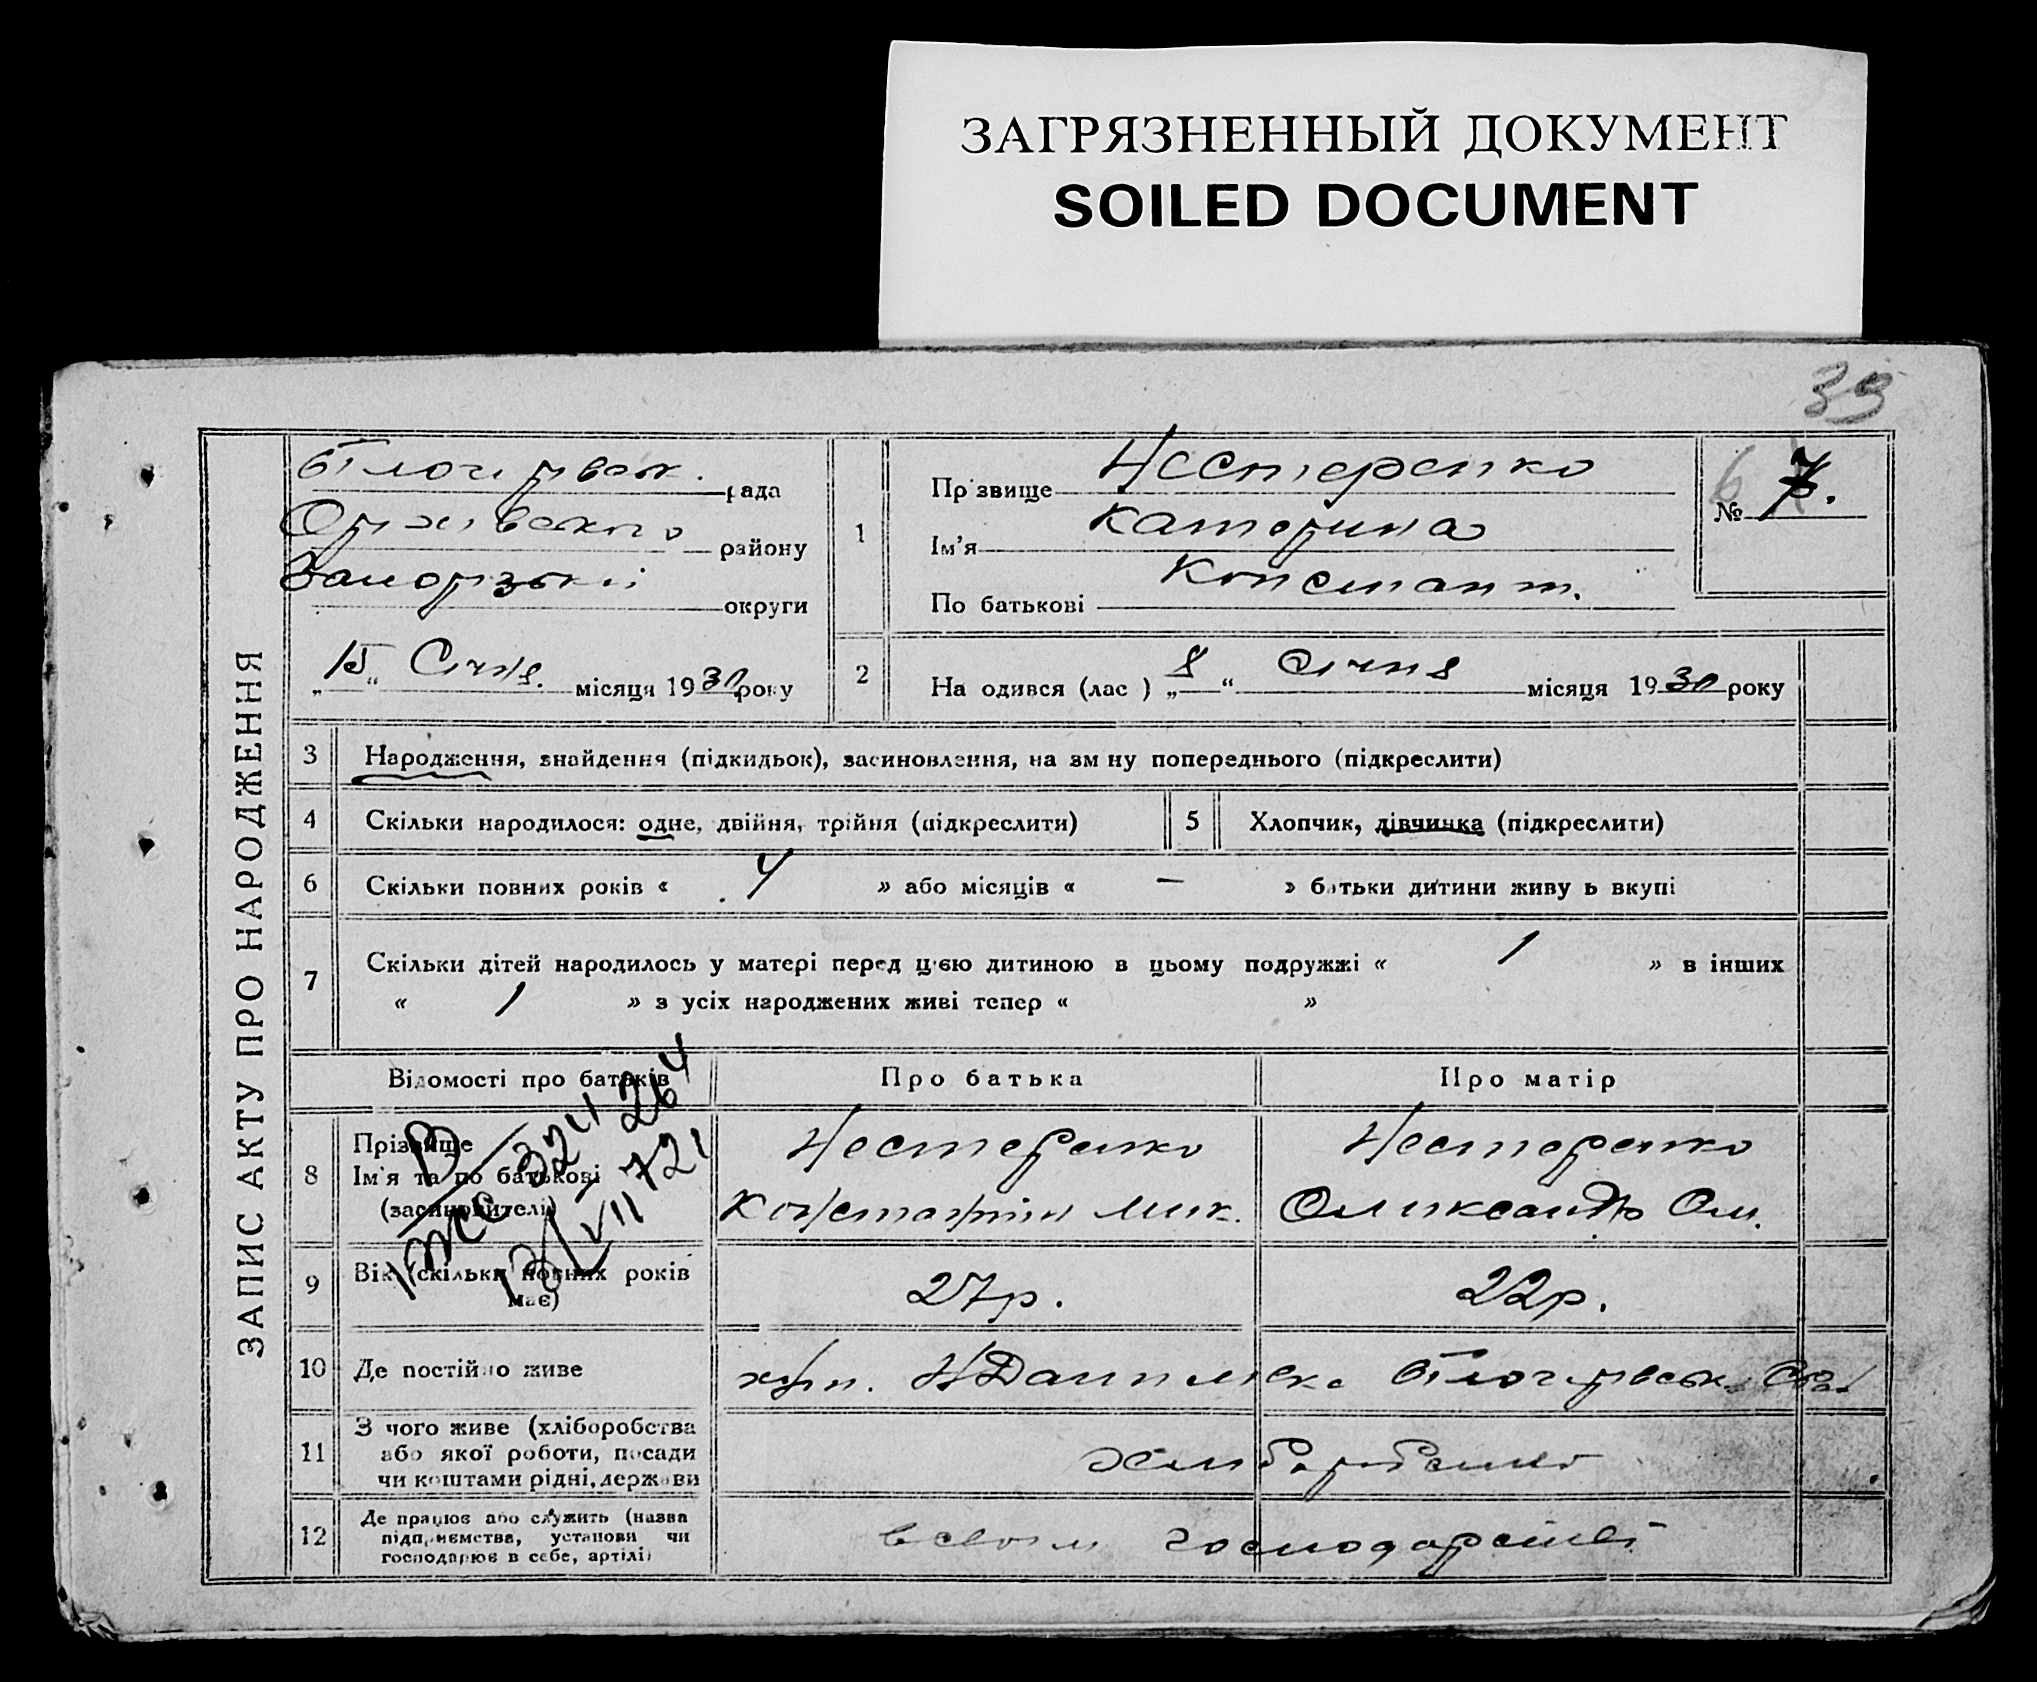 ЗАГРЯЗНЕННЫЙ ДОКУМЕНТ
SOILED DOCUMENT
39
ЗАПИС АКТУ ПРО НАРОДЖЕННЯ
Білогірвськ. рада
Оріхівського району
Запорізької округи
„15“ Січня місяця 1930 року
1
Прізвище Нестеренко
Ім'я Катерина
По батькові Констант.
№ 7.
2
На одився (лас ) „8“ Січня місяця 1930 року
3 Народження, знайдення (підкидьок), засиновлення, на зм ну попереднього (підкреслити)
4 Скільки народилося: одне, двійня, трійня (підкреслити)
5 Хлопчик, дівчинка (підкреслити)
6 Скільки повних років « 4 » або місяців « – » батьки дитини живу ь вкупі
7 Скільки дітей народилось у матері перед цією дитиною в цьому подружжі « 1 » в інших
« 1 » з усіх народжених живі тепер « »
Відомості про батьків Про батька Про матір
8 Прізвище
Ім'я та по батькові
(засиновителі)
Нестеренко
Константин Мик.
Нестеренко
Олександр Ом.
9 Вік (скільки повних років
має)
27р. 22р.
10 Де постійно живе
хут. Білогірвськ.
11 З чого живе (хліборобства
або якої роботи, посади
чи коштами рідні, держави
Хліборобство
12 Де працює або служить (назва
підприємства, установи чи
господарює в себе, артілі)
в своїм господарстві